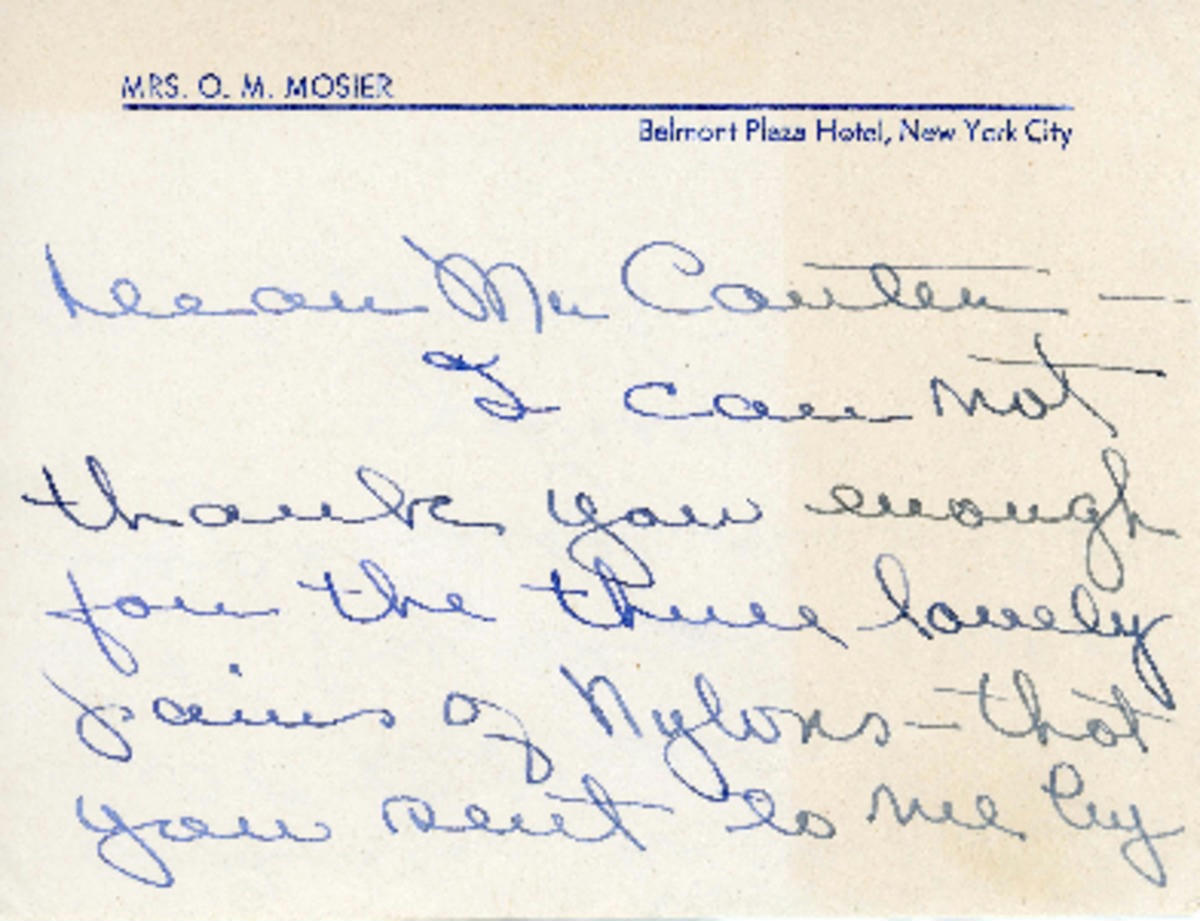 MRS. O. M. MOSIER
Belmont Plaza Hotel, New York City
Dear Mr Carter —
I can not
thank you enough
for the three lovely
pairs of Nylons — that
you sent to me by